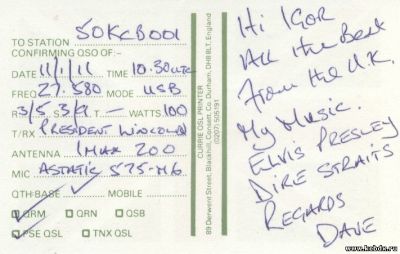 TO STATION 50KCB001
CONFIRMING QSO OF:-
DATE 11/1/11 TIME 10.30 UTC
FREQ 27.580 MODE USB
R 3/5 3/9 T — WATTS 100
T/RX PRESIDENT LINCOLN
ANTENNA IMAX 200
MIC ASTATIC 575-M6
QTH BASE MOBILE
QRM QRN QSB
PSE QSL TNX QSL
CURRIE QSL PRINTER
89 Derwent Street, Blackhill, Consett, Co. Durham, DH8 8LT, England
(0207) 505191
Hi IGOR
All the Best
From the U.K.
My Music.
ELVIS PRESLEY
DIRE STRAITS
REGARDS
DAVE
www.kcbdx.ru